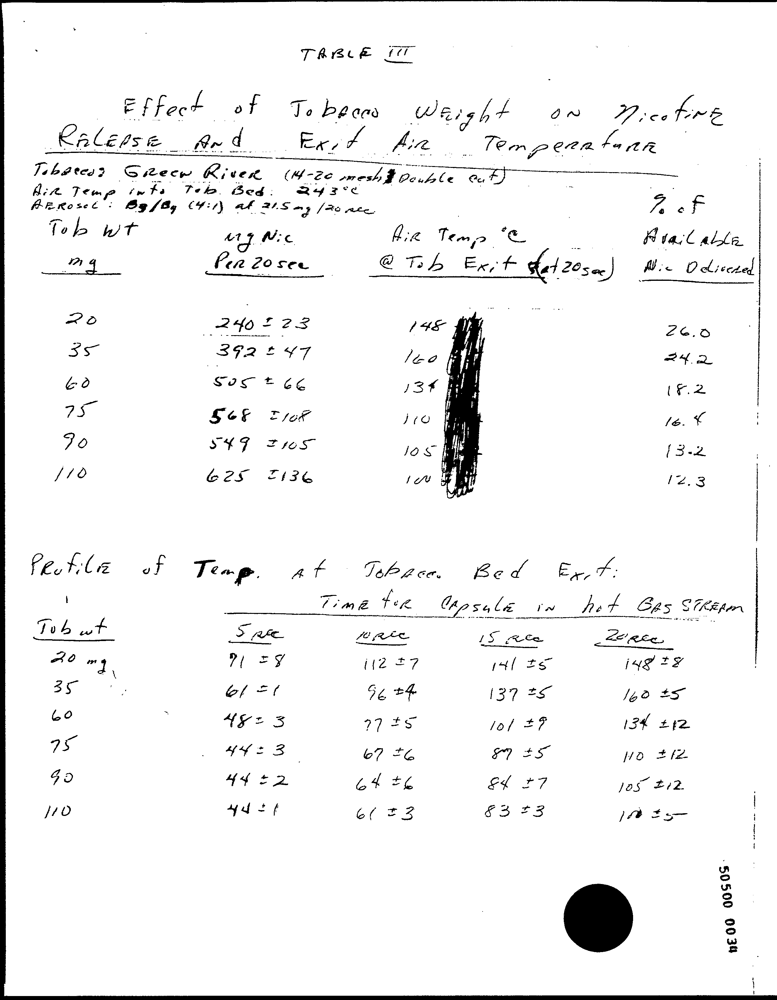 TABLE III
Effect of Tobacco Weight on Nicotine
Release And Exit Air Temperature
Tobacco: Green River (14-20 mesh Double cut)
Air Temp into Tob. Bed: 243°C
Aerosol: (4:1) at 21.5 mg/20 sec
% of
Tob wt µg Nic Air Temp °C Available
mg Per 20 sec @ Tob Exit (at 20 sec) Nic Delivered
20 240 ± 23 148 26.0
35 392 ± 47 160 24.2
60 505 ± 66 134 18.2
75 568 ± 108 110 16.4
90 549 ± 105 105 13.2
110 625 ± 136 100 12.3
Profile of Temp. At Tobacco Bed Exit:
Time for Capsule in hot Gas Stream
Tob wt 5 sec 10 sec 15 sec 20 sec
20 mg 71 ± 8 112 ± 7 141 ± 5 148 ± 8
35 61 ± 1 96 ± 4 137 ± 5 160 ± 5
60 48 ± 3 77 ± 5 101 ± 9 134 ± 12
75 44 ± 3 67 ± 6 89 ± 5 110 ± 12
90 44 ± 2 64 ± 6 84 ± 7 105 ± 12
110 44 ± 1 61 ± 3 83 ± 3 100 ± 5
50500 0034